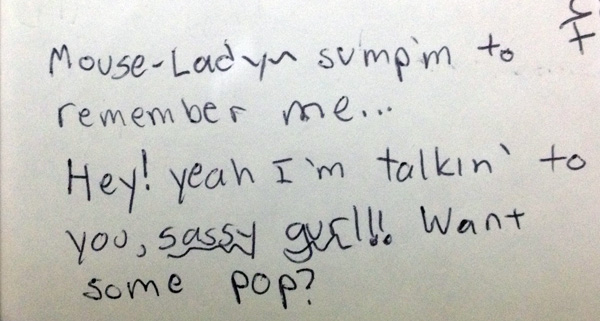 Mouse-Lady~ sump'm to
remember me...
Hey! yeah I'm talkin' to
you, sassy gurl!!! Want
some pop?